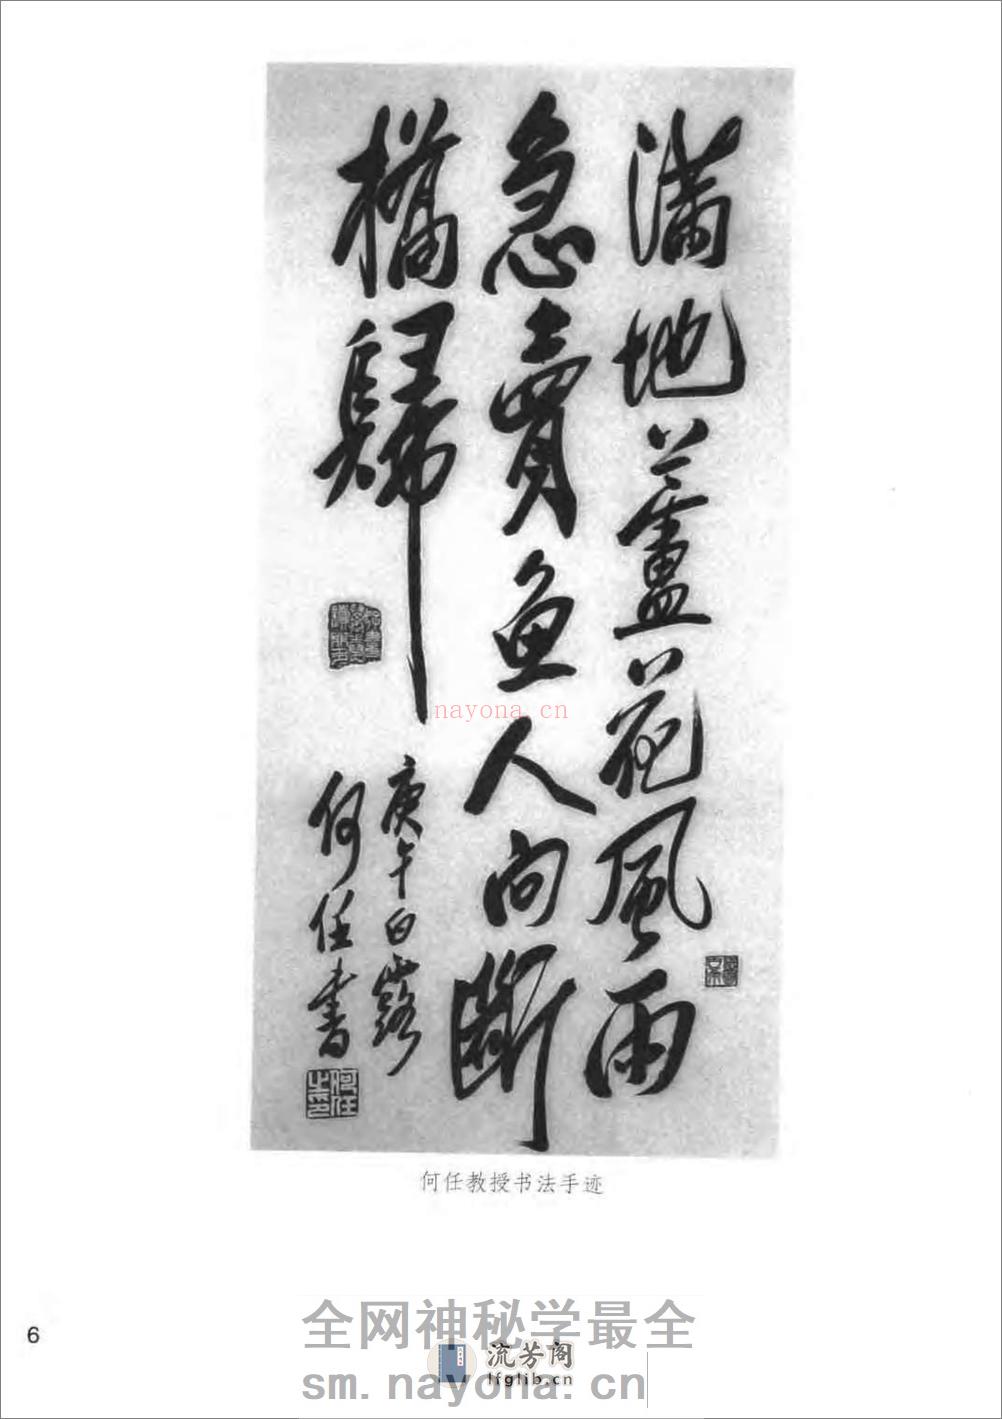 满地蘆花風雨
急賣魚人向斷
橋歸
庚午白露
何任書
何任之印
nayona.cn
何任教授书法手迹
6
全网神秘学最全
流芳阁
lfglib.cn
sm.nayona.cn